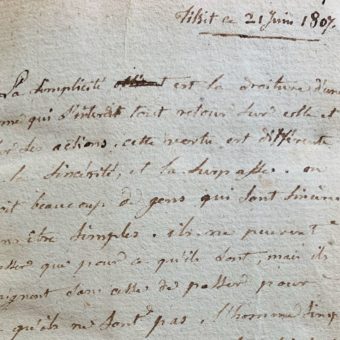 Tilsit ce 21 Juin 1807.
La simplicité est la droiture d'une
me qui s'interdit tout retour sur elle et
ses actions. cette vertu est différente
la sincérité, et la surpasse. on
oit beaucoup de gens qui sont sincè
ns être simples. ils ne peuvent
asser que pour ce qu'ils sont, mais ils
aignent sans cesse de passer pour
qu'ils ne sont pas. l'homme simp